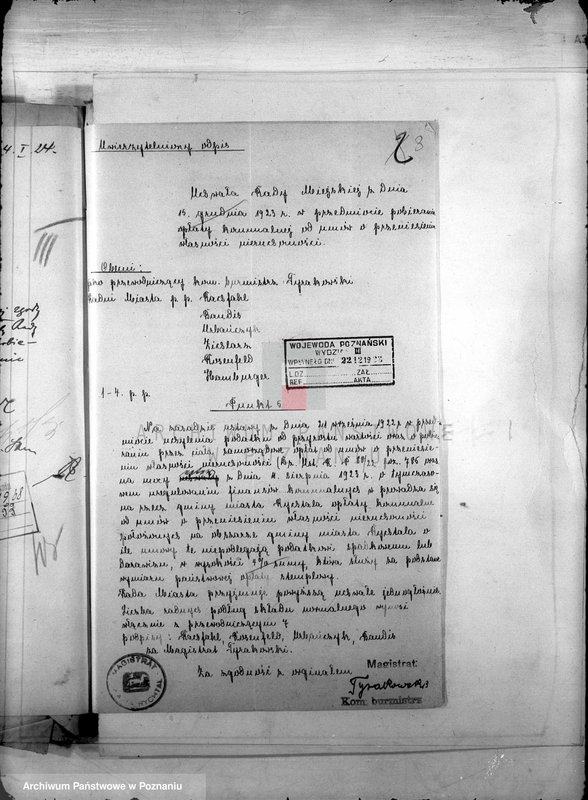 4. I. 24.
Uwierzytelniony odpis
3
Uchwała Rady Miejskiej z dnia
15. grudnia 1923 r. w przedmiocie pobierania
opłaty komunalnej od umów o przeniesienie
własności nieruchomości.
Obecni:
jako przewodniczący kom. burmistrz Tyrakowski
Radni Miasta p. p. Raesfahl
Baudis
Urbańczyk
Zieslarz
Rosenfeld
Hamburger
WOJEWODA POZNAŃSKI
WYDZIAŁ
WPŁYNĘŁO DN. 22 12 19
L.DZ. ZAŁ.
REF. AKTA
1-4. p. p.
Punkt 5
Na zasadzie ustawy z dnia 21 września 1922 r. w przed-
miocie uchylenia podatku od przyrostu wartości oraz o pobie-
raniu przez ciała samorządowe opłat od umów o przeniesie-
niu własności nieruchomości (Dz. Ust. R. P. N 88/22 poz. 786 oraz
na mocy z dnia 11. sierpnia 1923 r. o tymczaso-
wem uregulowaniu finansów komunalnych wprowadza się
na rzecz gminy miasta Rychtala opłaty komunalne
od umów o przeniesieniu własności nieruchomości
położonych na obszarze gminy miasta Rychtala o
ile umowy te niepodlegają podatkowi spadkowemu lub
darowizn, w wysokości 4% sumy, która służy za podstawę
wymiaru państwowej opłaty stemplowej.
Rada Miasta przyjmuje powyższą uchwałę jednogłośnie.
Liczba radnych podług składu normalnego wynosi
włącznie z przewodniczącym 7
podpisy: Raesfahl, Rosenfeld, Urbańczyk, Baudis
za Magistrat Tyrakowski.
Za zgodność z orginałem
Magistrat:
Tyrakowski
Kom. burmistrz
MAGISTRAT
RYCHTAL
Archiwum Państwowe w Poznaniu